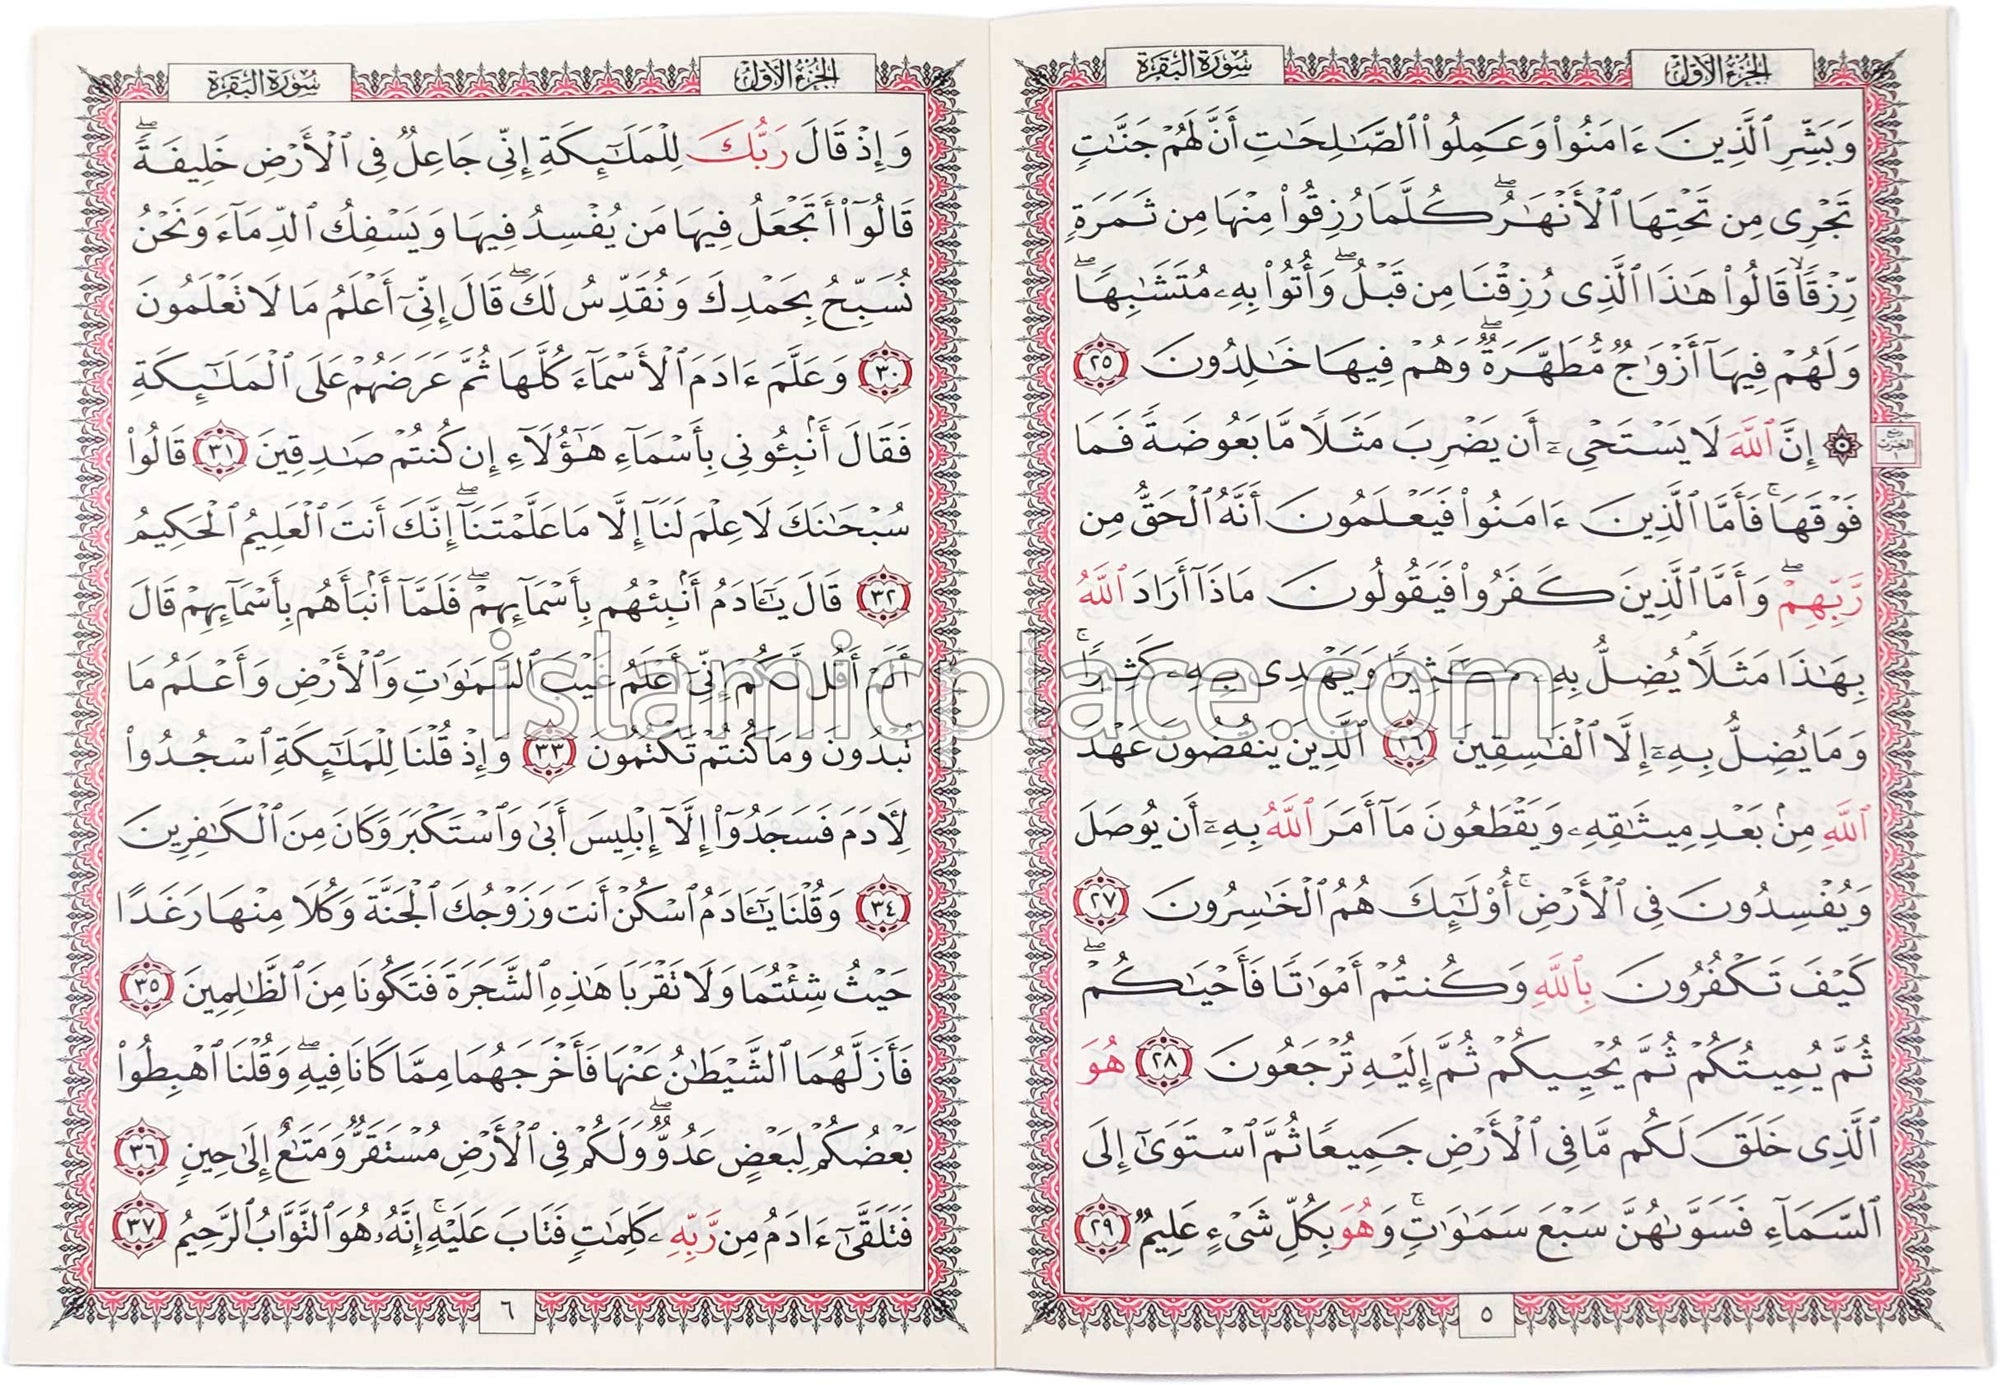 الجزء الأول
سورة البقرة
وَبَشِّرِ ٱلَّذِينَ ءَامَنُوا۟ وَعَمِلُوا۟ ٱلصَّٰلِحَٰتِ أَنَّ لَهُمْ جَنَّٰتٍ
تَجْرِى مِن تَحْتِهَا ٱلْأَنْهَٰرُ ۖ كُلَّمَا رُزِقُوا۟ مِنْهَا مِن ثَمَرَةٍ
رِّزْقًا ۙ قَالُوا۟ هَٰذَا ٱلَّذِى رُزِقْنَا مِن قَبْلُ ۖ وَأُتُوا۟ بِهِۦ مُتَشَٰبِهًا ۖ
وَلَهُمْ فِيهَآ أَزْوَٰجٌ مُّطَهَّرَةٌ ۖ وَهُمْ فِيهَا خَٰلِدُونَ ٢٥
۞ إِنَّ ٱللَّهَ لَا يَسْتَحْىِۦٓ أَن يَضْرِبَ مَثَلًا مَّا بَعُوضَةً فَمَا
فَوْقَهَا ۚ فَأَمَّا ٱلَّذِينَ ءَامَنُوا۟ فَيَعْلَمُونَ أَنَّهُ ٱلْحَقُّ مِن
رَّبِّهِمْ ۖ وَأَمَّا ٱلَّذِينَ كَفَرُوا۟ فَيَقُولُونَ مَاذَآ أَرَادَ ٱللَّهُ
بِهَٰذَا مَثَلًا ۘ يُضِلُّ بِهِۦ كَثِيرًا وَيَهْدِى بِهِۦ كَثِيرًا ۚ
وَمَا يُضِلُّ بِهِۦٓ إِلَّا ٱلْفَٰسِقِينَ ٢٦ ٱلَّذِينَ يَنقُضُونَ عَهْدَ
ٱللَّهِ مِنۢ بَعْدِ مِيثَٰقِهِۦ وَيَقْطَعُونَ مَآ أَمَرَ ٱللَّهُ بِهِۦٓ أَن يُوصَلَ
وَيُفْسِدُونَ فِى ٱلْأَرْضِ ۚ أُو۟لَٰٓئِكَ هُمُ ٱلْخَٰسِرُونَ ٢٧
كَيْفَ تَكْفُرُونَ بِٱللَّهِ وَكُنتُمْ أَمْوَٰتًا فَأَحْيَٰكُمْ ۖ
ثُمَّ يُمِيتُكُمْ ثُمَّ يُحْيِيكُمْ ثُمَّ إِلَيْهِ تُرْجَعُونَ ٢٨ هُوَ
ٱلَّذِى خَلَقَ لَكُم مَّا فِى ٱلْأَرْضِ جَمِيعًا ثُمَّ ٱسْتَوَىٰٓ إِلَى
ٱلسَّمَآءِ فَسَوَّىٰهُنَّ سَبْعَ سَمَٰوَٰتٍ ۚ وَهُوَ بِكُلِّ شَىْءٍ عَلِيمٌ ٢٩
٥
الجزء الأول
سورة البقرة
وَإِذْ قَالَ رَبُّكَ لِلْمَلَٰٓئِكَةِ إِنِّى جَاعِلٌ فِى ٱلْأَرْضِ خَلِيفَةً ۖ
قَالُوٓا۟ أَتَجْعَلُ فِيهَا مَن يُفْسِدُ فِيهَا وَيَسْفِكُ ٱلدِّمَآءَ وَنَحْنُ
نُسَبِّحُ بِحَمْدِكَ وَنُقَدِّسُ لَكَ ۖ قَالَ إِنِّىٓ أَعْلَمُ مَا لَا تَعْلَمُونَ
٣٠ وَعَلَّمَ ءَادَمَ ٱلْأَسْمَآءَ كُلَّهَا ثُمَّ عَرَضَهُمْ عَلَى ٱلْمَلَٰٓئِكَةِ
فَقَالَ أَنۢبِـُٔونِى بِأَسْمَآءِ هَٰٓؤُلَآءِ إِن كُنتُمْ صَٰدِقِينَ ٣١ قَالُوا۟
سُبْحَٰنَكَ لَا عِلْمَ لَنَآ إِلَّا مَا عَلَّمْتَنَآ ۖ إِنَّكَ أَنتَ ٱلْعَلِيمُ ٱلْحَكِيمُ
٣٢ قَالَ يَٰٓـَٔادَمُ أَنۢبِئْهُم بِأَسْمَآئِهِمْ ۖ فَلَمَّآ أَنۢبَأَهُم بِأَسْمَآئِهِمْ قَالَ
أَلَمْ أَقُل لَّكُمْ إِنِّىٓ أَعْلَمُ غَيْبَ ٱلسَّمَٰوَٰتِ وَٱلْأَرْضِ وَأَعْلَمُ مَا
تُبْدُونَ وَمَا كُنتُمْ تَكْتُمُونَ ٣٣ وَإِذْ قُلْنَا لِلْمَلَٰٓئِكَةِ ٱسْجُدُوا۟
لِـَٔادَمَ فَسَجَدُوٓا۟ إِلَّآ إِبْلِيسَ أَبَىٰ وَٱسْتَكْبَرَ وَكَانَ مِنَ ٱلْكَٰفِرِينَ
٣٤ وَقُلْنَا يَٰٓـَٔادَمُ ٱسْكُنْ أَنتَ وَزَوْجُكَ ٱلْجَنَّةَ وَكُلَا مِنْهَا رَغَدًا
حَيْثُ شِئْتُمَا وَلَا تَقْرَبَا هَٰذِهِ ٱلشَّجَرَةَ فَتَكُونَا مِنَ ٱلظَّٰلِمِينَ ٣٥
فَأَزَلَّهُمَا ٱلشَّيْطَٰنُ عَنْهَا فَأَخْرَجَهُمَا مِمَّا كَانَا فِيهِ ۖ وَقُلْنَا ٱهْبِطُوا۟
بَعْضُكُمْ لِبَعْضٍ عَدُوٌّ ۖ وَلَكُمْ فِى ٱلْأَرْضِ مُسْتَقَرٌّ وَمَتَٰعٌ إِلَىٰ حِينٍ ٣٦
فَتَلَقَّىٰٓ ءَادَمُ مِن رَّبِّهِۦ كَلِمَٰتٍ فَتَابَ عَلَيْهِ ۚ إِنَّهُۥ هُوَ ٱلتَّوَّابُ ٱلرَّحِيمُ ٣٧
٦
islamicplace.com